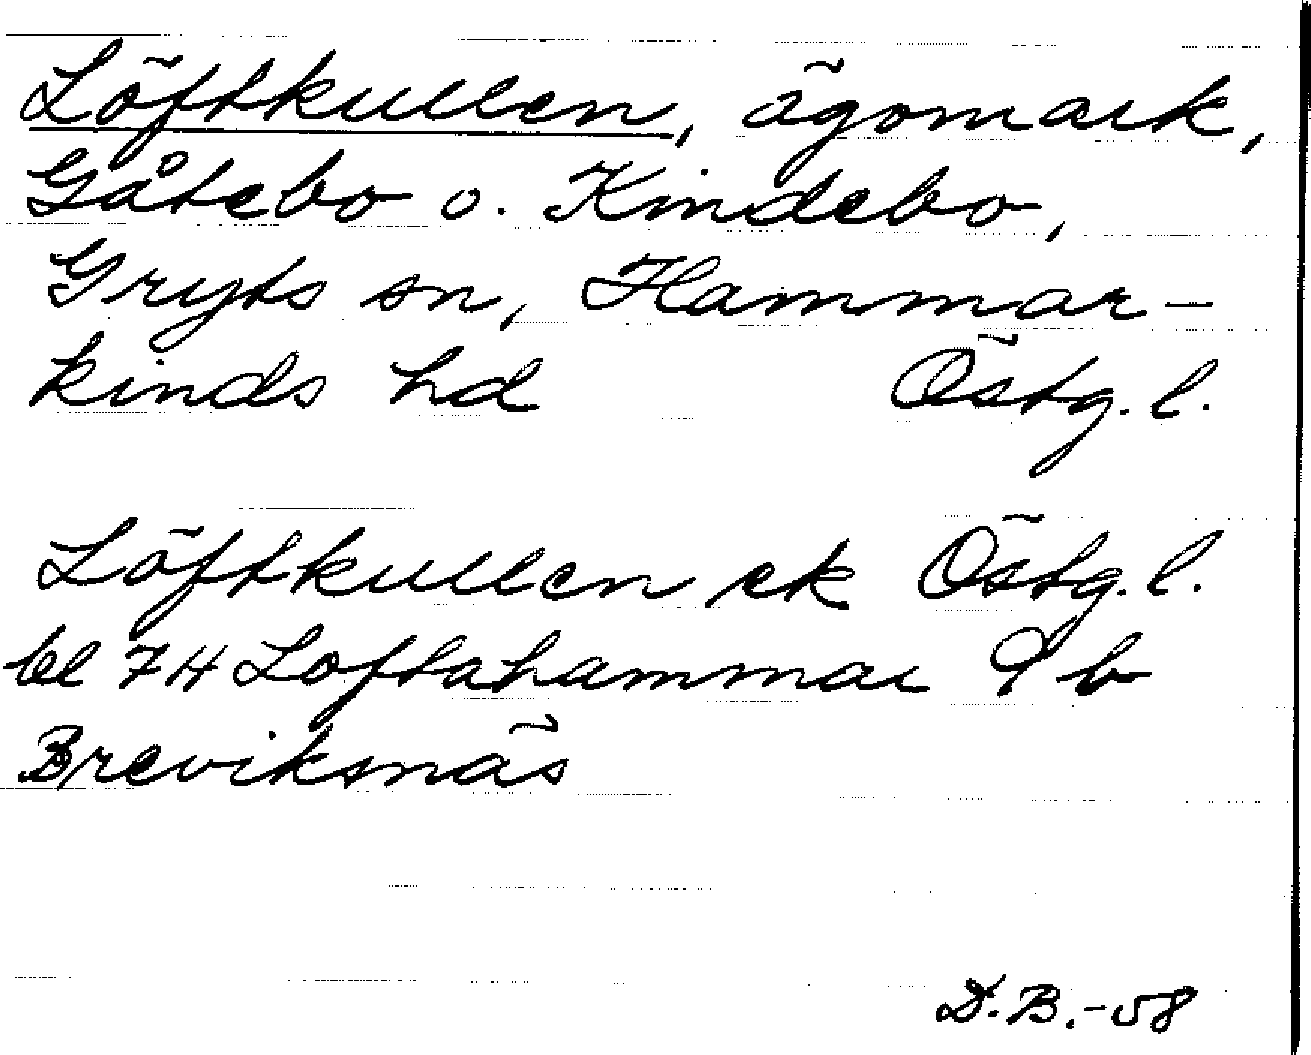 Löftkullen, ägomark,
Gåtebo o. Kindebo,
Gryts sn, Hammar-
kinds hd Östg. l.
Löftkullen ek Östg. l.
bl 7H Loftahammar 9 b
Breviksnäs
D.B.-58